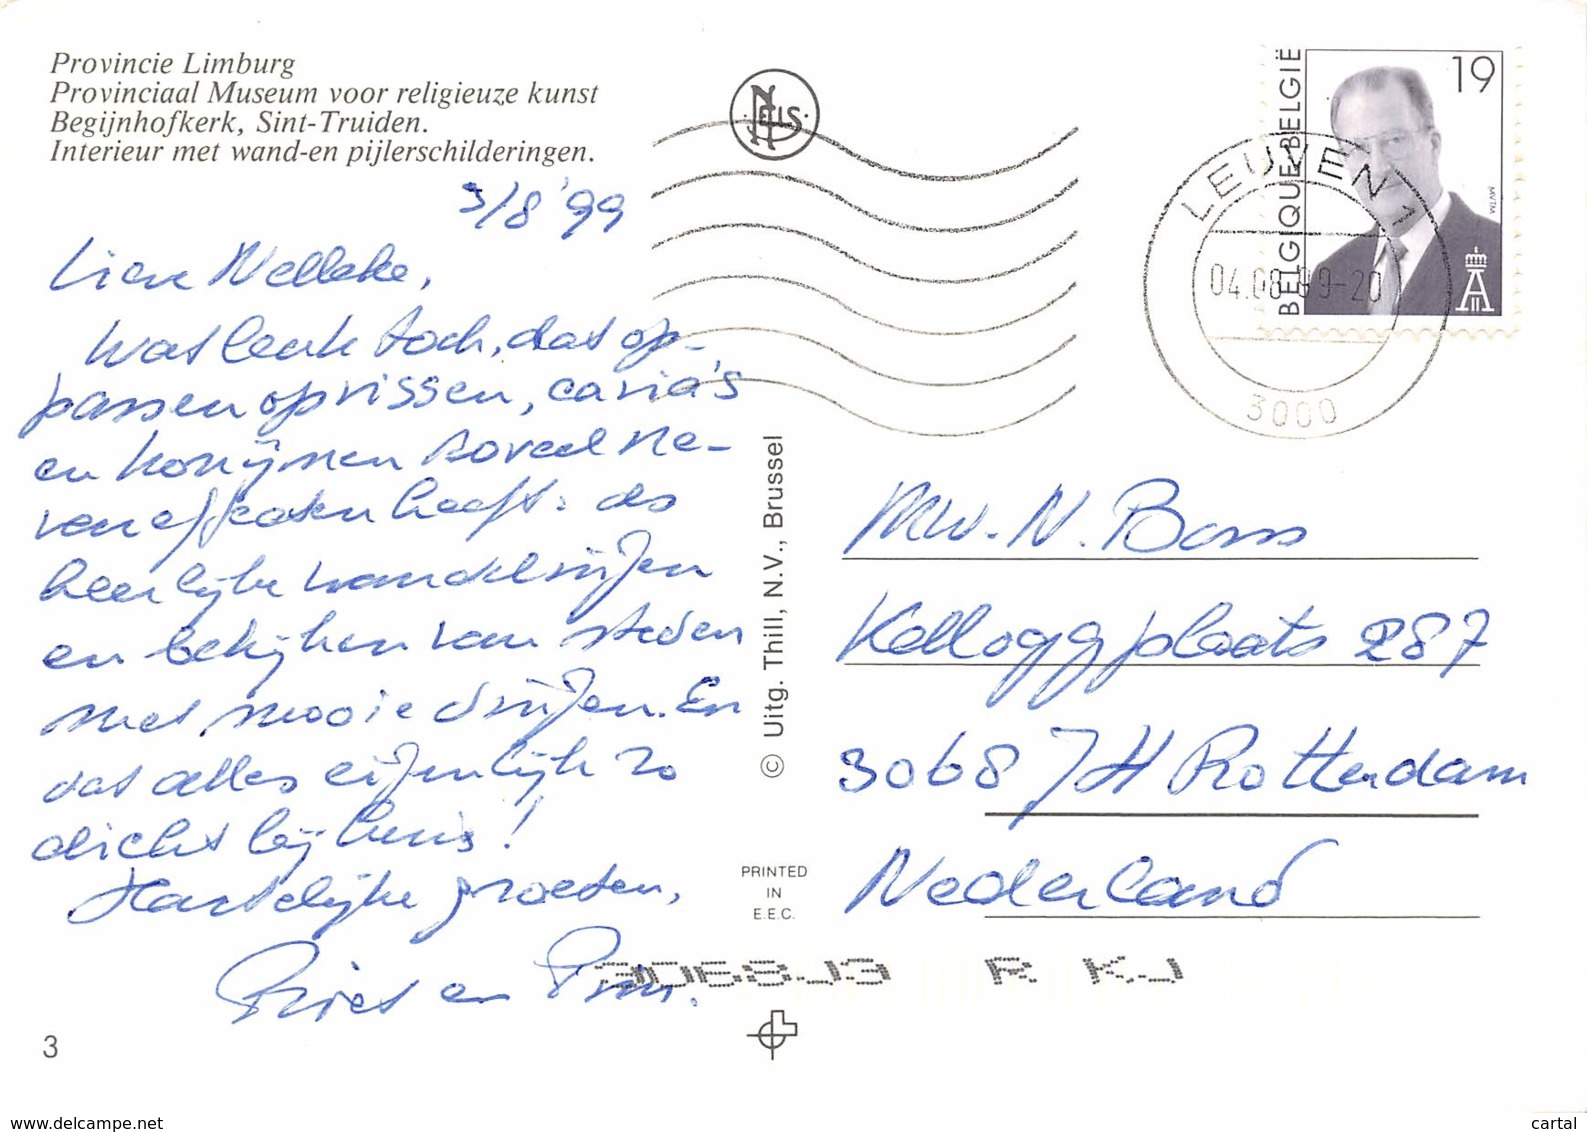 Provincie Limburg
Provinciaal Museum voor religieuze kunst
Begijnhofkerk, Sint-Truiden.
Interieur met wand-en pijlerschilderingen.
3/8 '99
Lieve Nelleke,
Wat leuk toch, dat op-
passen op vissen, cavia's
en konijnen zoveel ne-
ven effecten heeft: als
heerlijke wandelingen
en bekijken van steden
met mooie dingen. En
dat alles eigenlijk zo
dicht bij huis!
Hartelijke groeten,
Riet en Pim.
3
NELS
© Uitg. Thill, N.V., Brussel
PRINTED
IN
E.E.C.
BELGIQUE-BELGIË
19
MVTM
LEUVEN 1
04.08.99-20
3000
Mw. N. Bons
Kelloggplaats 287
3068 JH Rotterdam
Nederland
3068J3 R KJ
www.delcampe.net
cartal